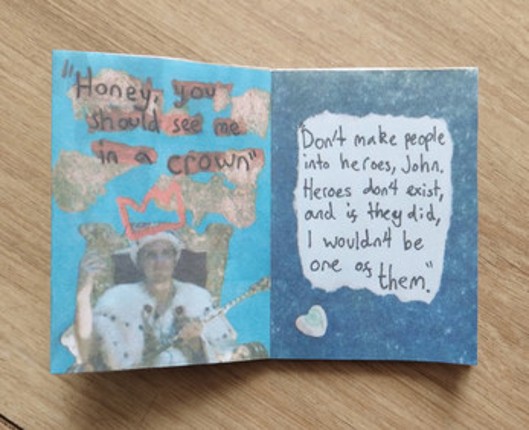 "Honey, you
should see me
in a crown"
"Don't make people
into heroes, John.
Heroes don't exist,
and if they did,
I wouldn't be
one of them."